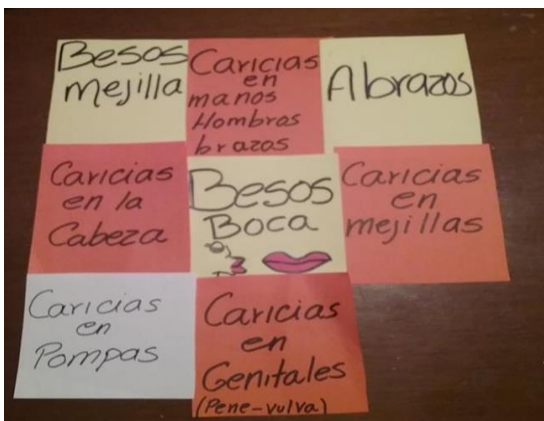 Besos
Mejilla
Caricias
en
manos
Hombros
brazos
Abrazos
Caricias
en la
Cabeza
Besos
Boca
Caricias
en
mejillas
Caricias
en
Pompas
Caricias
en
Genitales
(Pene-vulva)